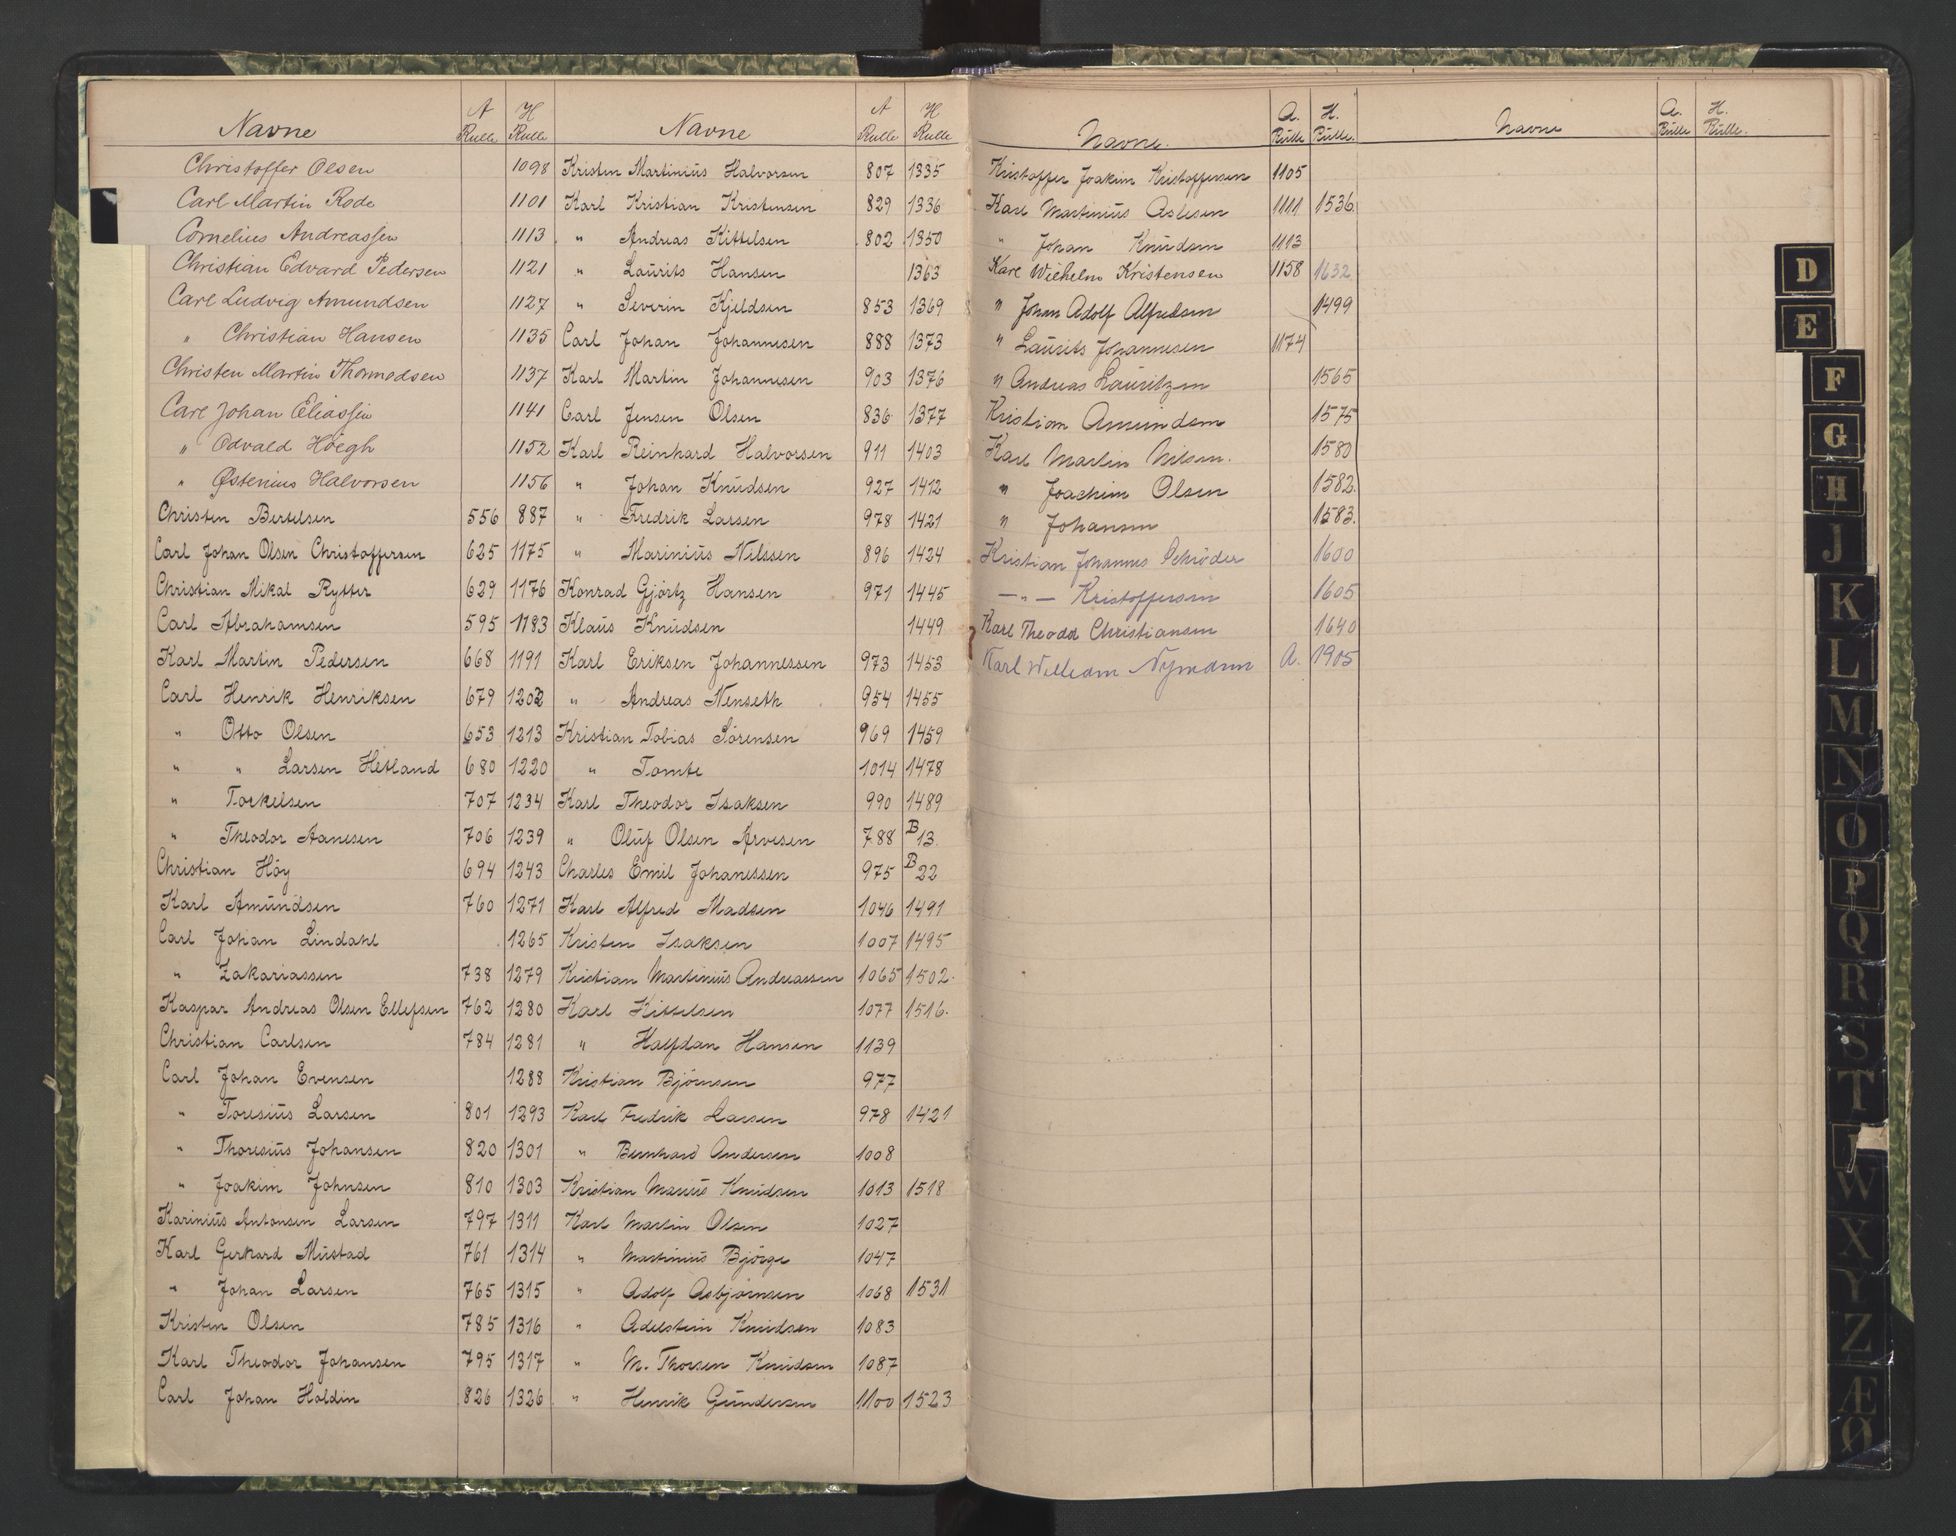 Navne A Rulle H Rulle
Christoffer Olsen 1098
Carl Martin Rode 1101
Cornelius Andreassen 1113
Christian Edvard Pedersen 1121
Carl Ludvig Amundsen 1127
" Christian Hansen 1135
Christen Martin Thormodsen 1137
Carl Johan Eliassen 1141
" Odvald Höegh 1152
" Østenius Halvorsen 1156
Christen Bertelsen 556 887
Carl Johan Olsen Christoffersen 625 1175
Christian Mikal Rytter 629 1176
Carl Abrahamsen 595 1183
Karl Martin Pedersen 668 1191
Carl Henrik Henriksen 679 1202
" Otto Olsen 653 1213
" " Larsen Hetland 680 1220
" Torkelsen 707 1234
" Theodor Aanesen 706 1239
Christian Höy 694 1243
Karl Amundsen 760 1271
Carl Johan Lindahl 1265
" Zakariassen 738 1279
Kaspar Andreas Olsen Ellefsen 762 1280
Christian Carlsen 784 1281
Carl Johan Evensen 1288
" Toresius Larsen 801 1293
" Thoresius Johansen 820 1301
" Joakim Johnsen 810 1303
Karinius Antonsen Larsen 797 1311
Karl Gerhard Mustad 761 1314
" Johan Larsen 765 1315
Kristen Olsen 785 1316
Karl Theodor Johansen 795 1317
Carl Johan Holdin 826 1326
Navne A Rulle H Rulle
Kristen Martinius Halvorsen 807 1335
Karl Kristian Kristensen 829 1336
" Andreas Kittelsen 802 1350
" Laurits Hansen 1363
" Severin Kjeldsen 853 1369
Carl Johan Johannesen 888 1373
Karl Martin Johannesen 903 1376
Carl Jensen Olsen 836 1377
Karl Reinhard Halvorsen 911 1403
" Johan Knudsen 927 1412
" Fredrik Larsen 978 1421
" Marinius Nilssen 896 1424
Konrad Gjörtz Hansen 971 1445
Klaus Knudsen 1449
Karl Eriksen Johannessen 973 1453
" Andreas Nenseth 954 1455
Kristian Tobias Sörensen 969 1459
" Tomte 1014 1478
Karl Theodor Isaksen 990 1489
" Oluf Olsen Arvesen 788 B 13
Charles Emil Johanessen 975 B 22
Karl Alfred Madsen 1046 1491
Kristen Isaksen 1007 1495
Kristian Martinius Andreassen 1065 1502.
Karl Kittelsen 1077 1516.
" Halfdan Hansen 1139
Kristian Bjørnsen 977
Karl Fredrik Larsen 978 1421
" Bernhard Andersen 1008
Kristian Marius Knudsen 1013 1518
Karl Martin Olsen 1027
" Martinius Bjørge 1047
" Adolf Asbjørnsen 1068 1531
" Adelstein Knudsen 1083
" M. Thorsen Knudsen 1087
" Henrik Gundersen 1100 1523
Navne. A. Rulle H. Rulle.
Kristoffer Joakim Kristoffersen 1105
Karl Martinius Aslesen 1111 1536.
" Johan Knudsen 1113
Karl Wilhelm Kristensen 1158 1632
" Johan Adolf Alfredsen 1499
" Laurits Johannesen 1174
" Andreas Lauritzen 1565
Kristian Amundsen 1575
Karl Martin Nilsen. 1580
" Joachim Olsen 1582.
" Johansen 1583.
Kristian Johannes Schröder 1600
— " — Kristoffersen 1605
Karl Theodd Christiansen 1640
Karl William Nymann A. 1905
Navne A. Rulle H. Rulle.
D
E
F
G
H
J
K
L
M
N
O
P
Q
R
S
T
W
X
Y
Z
Æ
Ø